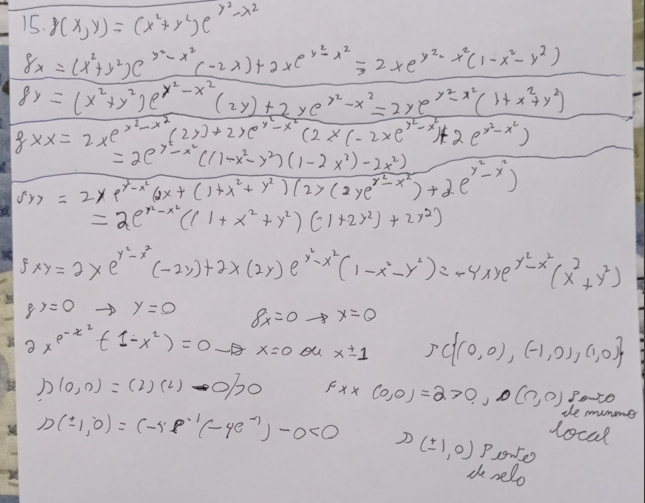 15. f(x,y) = (x²+y²)e^{y²-x²}
fx = (x²+y²)e^{y²-x²}(-2x)+2xe^{y²-x²} = 2xe^{y²-x²}(1-x²-y²)
fy = (x²+y²)e^{y²-x²}(2y)+2ye^{y²-x²} = 2ye^{y²-x²}(1+x²+y²)
fxx = 2xe^{y²-x²}(2y)+2xe^{y²-x²}(2x(-2xe^{y²-x²})+2e^{y²-x²})
= 2e^{y²-x²}((1-x²-y²)(1-2x²)-2x²)
fyy = 2xe^{y²-x²} 2x+(1+x²+y²)(2y(2ye^{y²-x²})+2e^{y²-x²})
= 2e^{y²-x²}((1+x²+y²)(1+2y²)+2y²)
fxy = 2xe^{y²-x²}(-2y)+2x(2y)e^{y²-x²}(1-x²-y²) = -4xye^{y²-x²}(x²+y²)
fy=0 → y=0 fx=0 → x=0
2xe^{-x²}(1-x²)=0 → x=0 ou x±1 PC{(0,0), (-1,0), (1,0)}
D(0,0) = (2)(2) - 0>0 fxx (0,0)=2>0, (0,0) Ponto
de minimo
local
D(±1,0) = (-4e^{-1}(-4e^{-1})-0<0 D(±1,0) Ponto
de sela